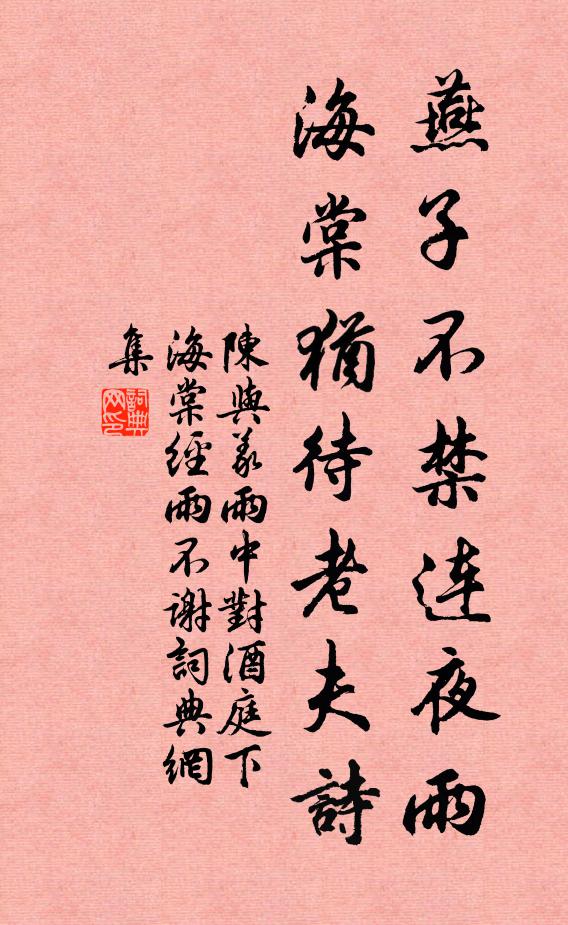 燕子不禁連夜雨
海棠猶待老夫詩
陳與義雨中對酒庭下
海棠經雨不謝詞典網
集
詞典
网印